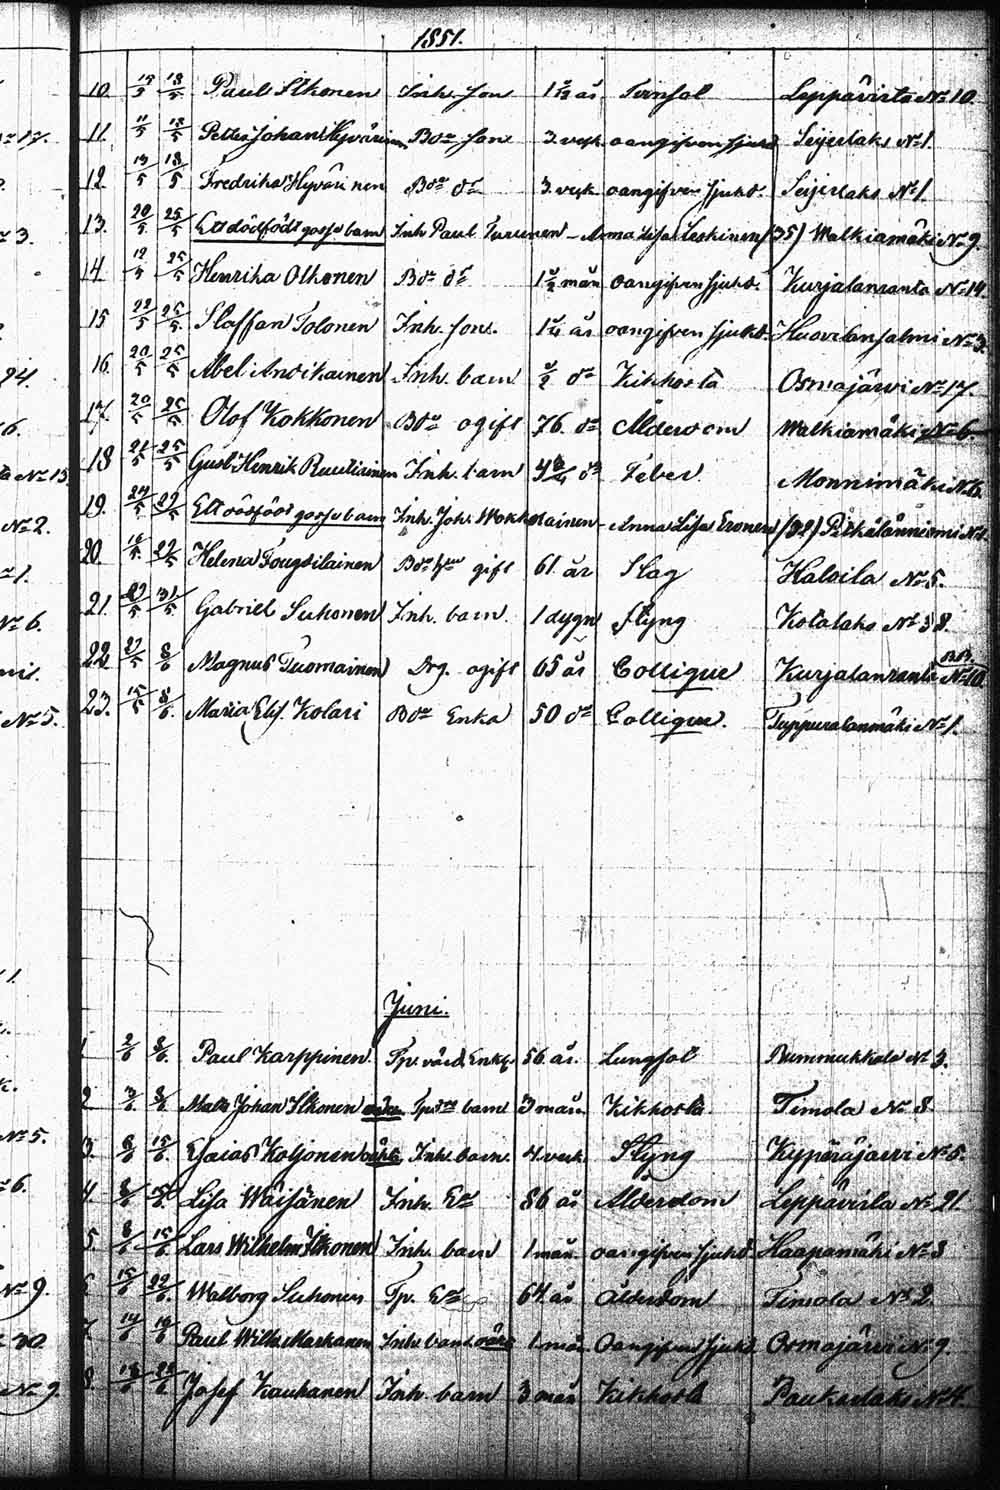 1851.
10. 15/5 18/5 Paul Ikonen Inh. son 1 år Tvinsot Leppävirta No 10.
11. 11/5 18/5 Petter Johan Hyvärinen Bde son 3. veck oangifven sjukd Seijerlaks No 1.
12. 13/5 18/5 Fredrika Hyvärinen Bde dr 3. veck oangifven sjukd. Seijerlaks No 1.
13. 20/5 25/5 Ett dödfödt gosse barn Inh. Paul Turunen – Anna Lisa Leskinen (35) Walkiamäki No 9.
14 19/5 25/5 Henrika Olkonen Bde dr 1 1/2 mån oangifven sjukd. Kurjalanranta No 14.
15 22/5 25/5 Staffan Tolonen Inh. son. 1 1/4 år oangifven sjukd. Huovilansalmi No 3.
16. 20/5 25/5 Abel Andikainen Inh. barn 1/2 do Kikhosta Osmajärvi No 17.
17. 20/5 25/5 Olof Kokkonen Bde ogift 76. do Ålderdom Walkiamäki No 6.
18 21/5 25/5 Gust. Henrik Ruutiainen Inh. barn 4 do Feber Monnimäki No 6.
19. 24/5 29/5 Ett dödfödt gosse barn Inh. Joh. Wokkolainen – Anna Lisa Eronen (32) Pitkälänniemi No 1.
20. 18/5 29/5 Helena Tougsilainen Bde hu gift 61. år Slag Halvila No 5.
21. 29/5 31/5 Gabriel Suhonen Inh. barn. 1 dygn Slyng Kotalaks No 38.
22. 27/5 8/6 Magnus Tuomainen Drg. ogift 65 år Collique Kurjalanranta No 10
23. 15/5 8/6. Maria Elis. Kolari Bde Enka 50 do Collique. Tuppuralanmäki No 1.
Juni.
1 2/6 8/6. Paul Karppinen. Tp. värd, Enkl. 56 år. Lungsot Rummukkala No 3.
2 3/6 8/6 Mats Johan Ikonen Tpdrs barn 3 mån. Kikhosta Timola No 8
3. 8/6 15/6. Esaias Koljonen Inh. barn. 4. veck. Slyng Kypäräjärvi No 5.
4. 8/6 15/6. Lisa Wäisänen Inh. Ea 86 år Ålderdom Leppävirta No 21.
5. 8/6 15/6. Lars Wilhelm Ikonen Inh. barn 1 mån. oangifven sjukd. Haapamäki No 3
6 15/6 22/6. Walborg Suhonen Tp. Ea 64. år Ålderdom Timola No 2.
7. 14/6 19/6 Paul Wilh. Markanen Inh. barn 1 mån. Oangifven sjukd. Osmajärvi No 9.
8. 18/6 22/6 Josef Kauhanen Inh. barn 3 mån Kikhosta Paukarlaks No 4.